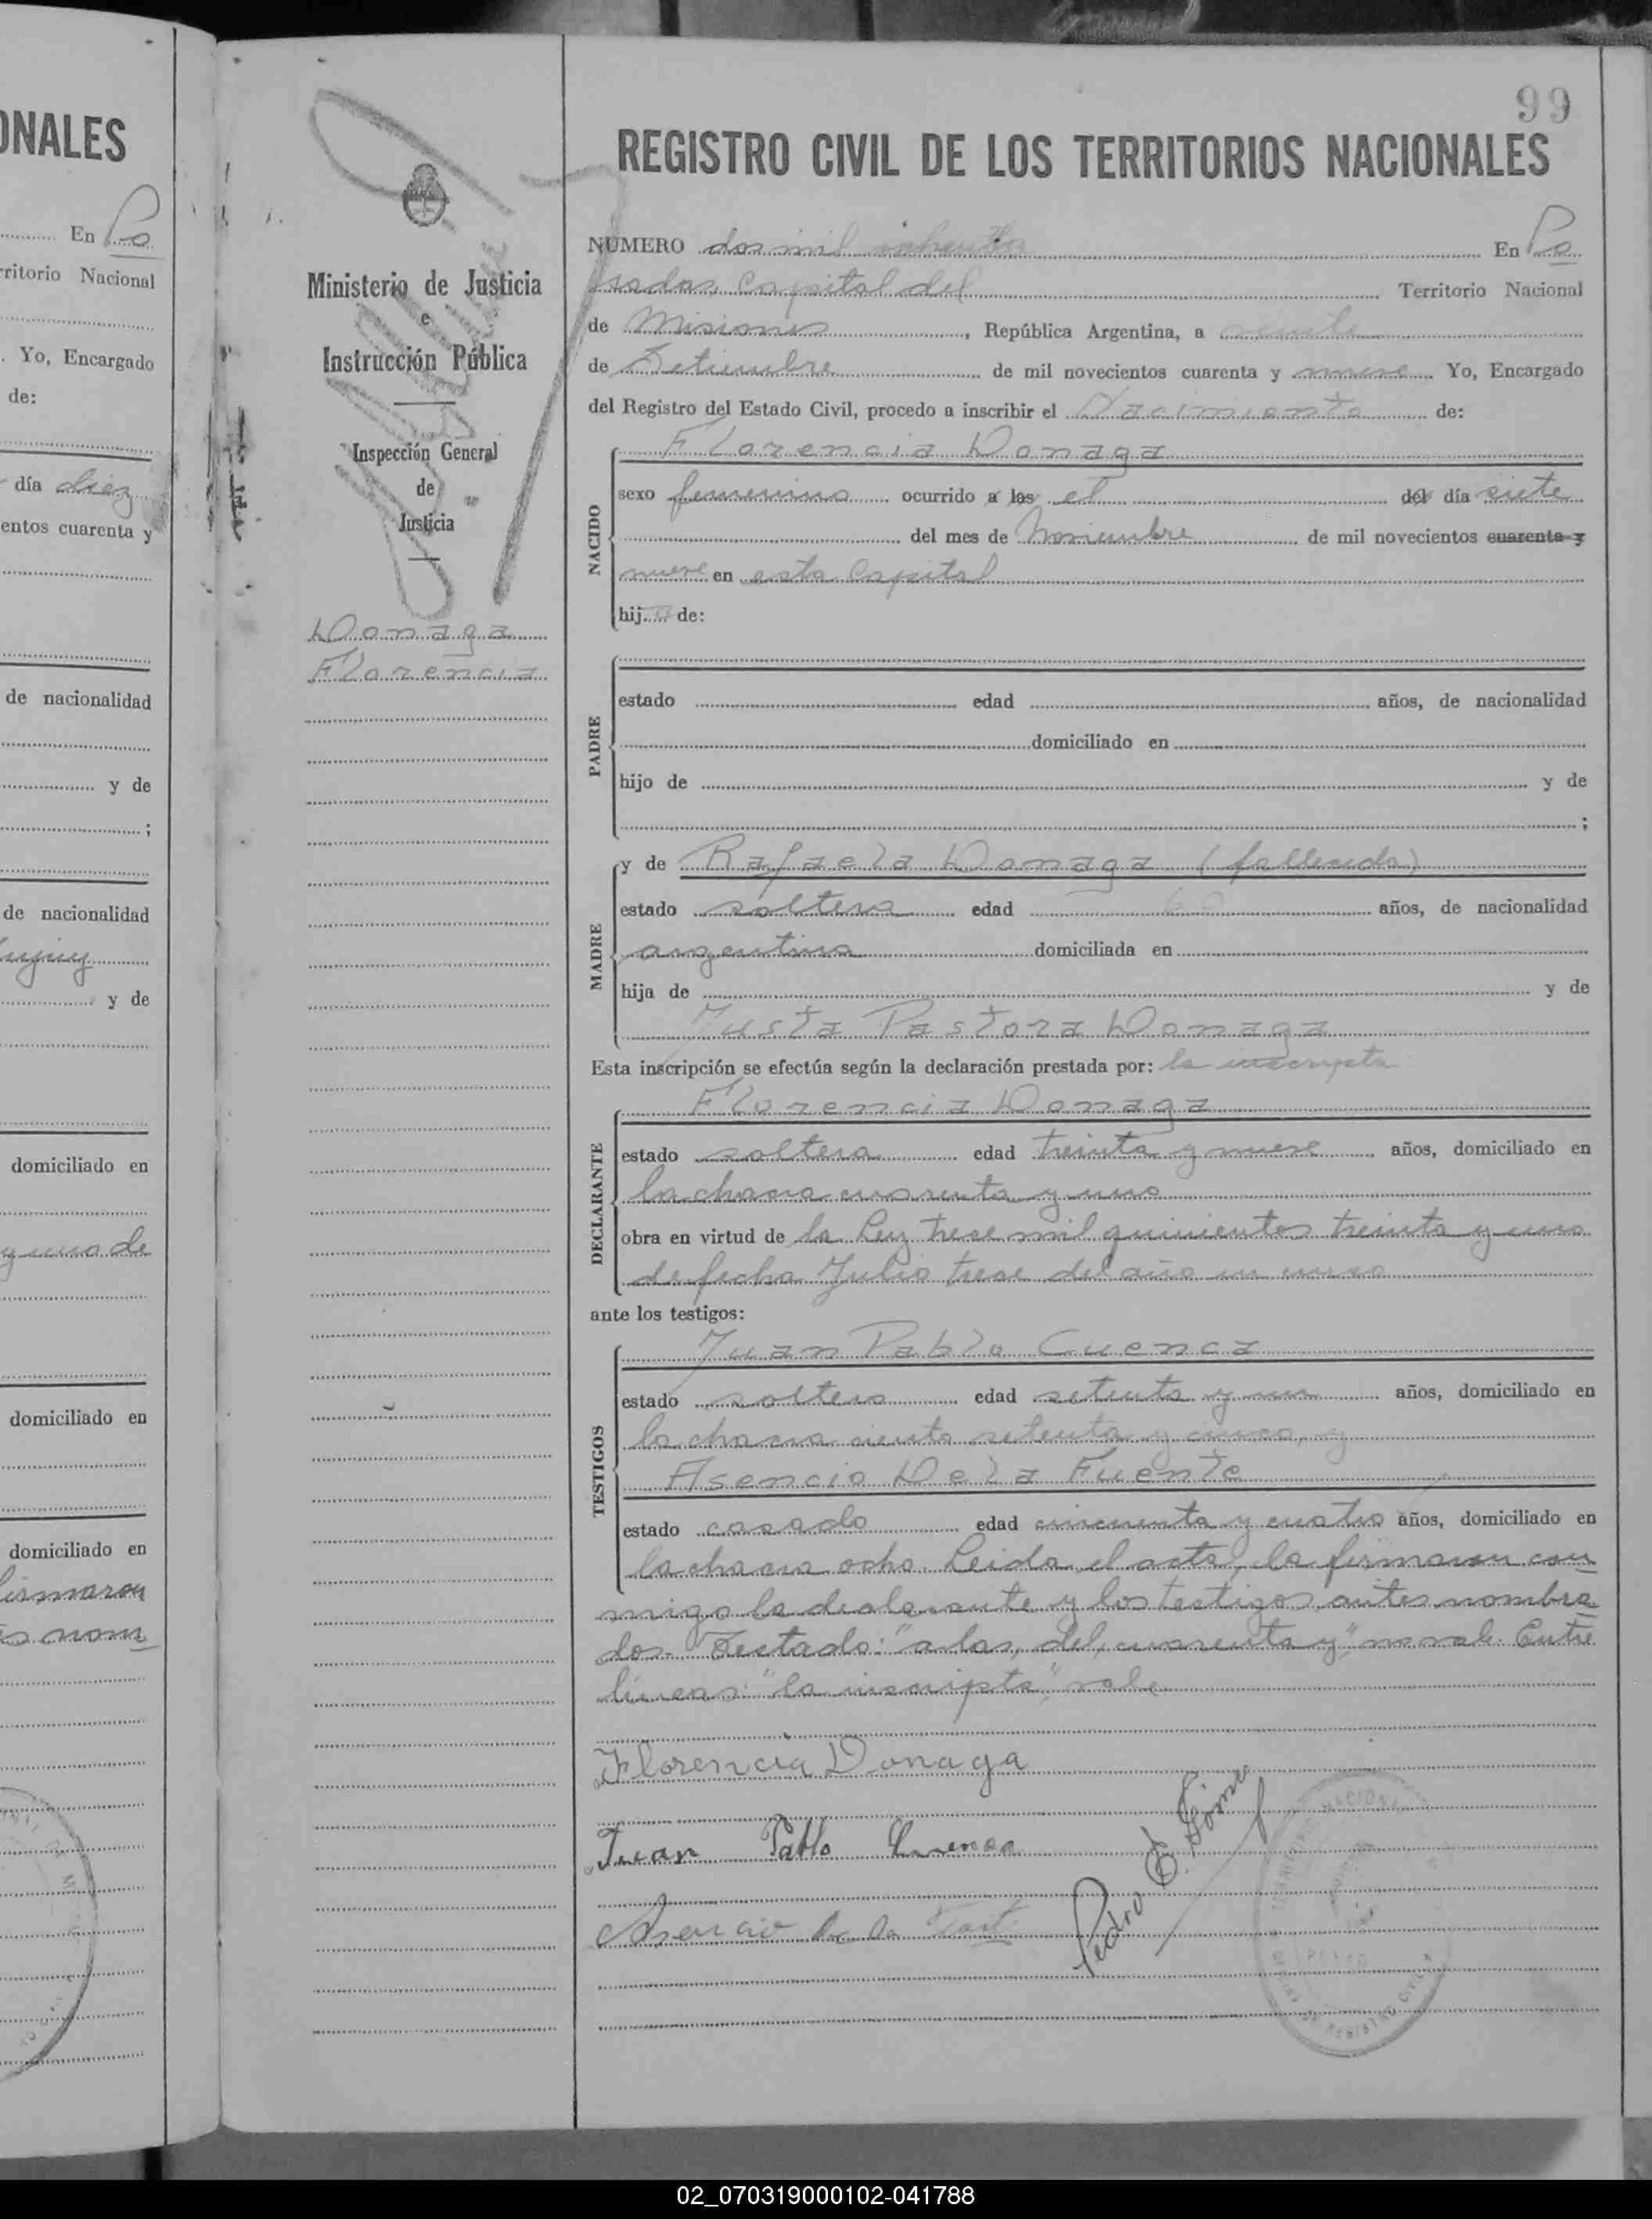 ONALES
En Po
rritorio Nacional
. Yo, Encargado
de:
día diez
entos cuarenta y
de nacionalidad
y de
;
de nacionalidad
y de
domiciliado en
y uno de
domiciliado en
domiciliado en
firmaron
nom
Ministerio de Justicia
e
Instrucción Pública
Inspección General
de
Justicia
Donaga
Florencia
99
REGISTRO CIVIL DE LOS TERRITORIOS NACIONALES
NÚMERO dos mil ochenta En Po
sadas, Capital del Territorio Nacional
de Misiones, República Argentina, a veinte
de Setiembre de mil novecientos cuarenta y nueve Yo, Encargado
del Registro del Estado Civil, procedo a inscribir el Nacimiento de:
NACIDO
Florencia Donaga
sexo femenino ocurrido a las el del día siete
del mes de Noviembre de mil novecientos cuarenta y
nueve en esta Capital
hija de:
PADRE
estado edad años, de nacionalidad
domiciliado en
hijo de y de
;
MADRE
y de Rafaela Donaga (fallecida)
estado soltera edad años, de nacionalidad
argentina domiciliada en
hija de y de
Justa Pastora Donaga
Esta inscripción se efectúa según la declaración prestada por: la inscripta
DECLARANTE
Florencia Donaga
estado soltera edad treinta y nueve años, domiciliado en
la chacra cuarenta y uno
obra en virtud de la Ley trece mil quinientos treinta y uno
de fecha Julio trece del año en curso
ante los testigos:
TESTIGOS
Juan Pablo Cuenca
estado soltero edad setenta y un años, domiciliado en
la chacra ciento setenta y cinco, y
Asencio De la Fuente
estado casado edad cincuenta y cuatro años, domiciliado en
la chacra ocho. Leida el acta, la firmaron con
migo la declarante y los testigos antes nombra
dos. Testado: "a las, del, cuarenta y" no vale. Entre
líneas: "la inscripta", vale.
Florencia Donaga
Juan Pablo Cuenca
Asencio de la Fuente
Pedro E. Gómez
02_070319000102-041788